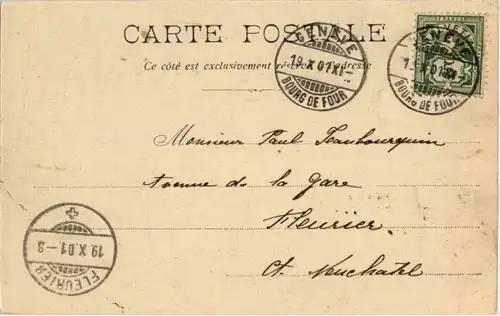 CARTE POSTALE
Ce côté est exclusivement réservé à l'adresse
GENÈVE
19.X.01.XI-
BOURG DE FOUR
GENÈVE
19.X.01.XI-
BOURG DE FOUR
FRANCO
5
Monsieur Paul Jeanbourquin
Avenue de la Gare
Fleurier
Ct. Neuchatel
FLEURIER
19.X.01.-8